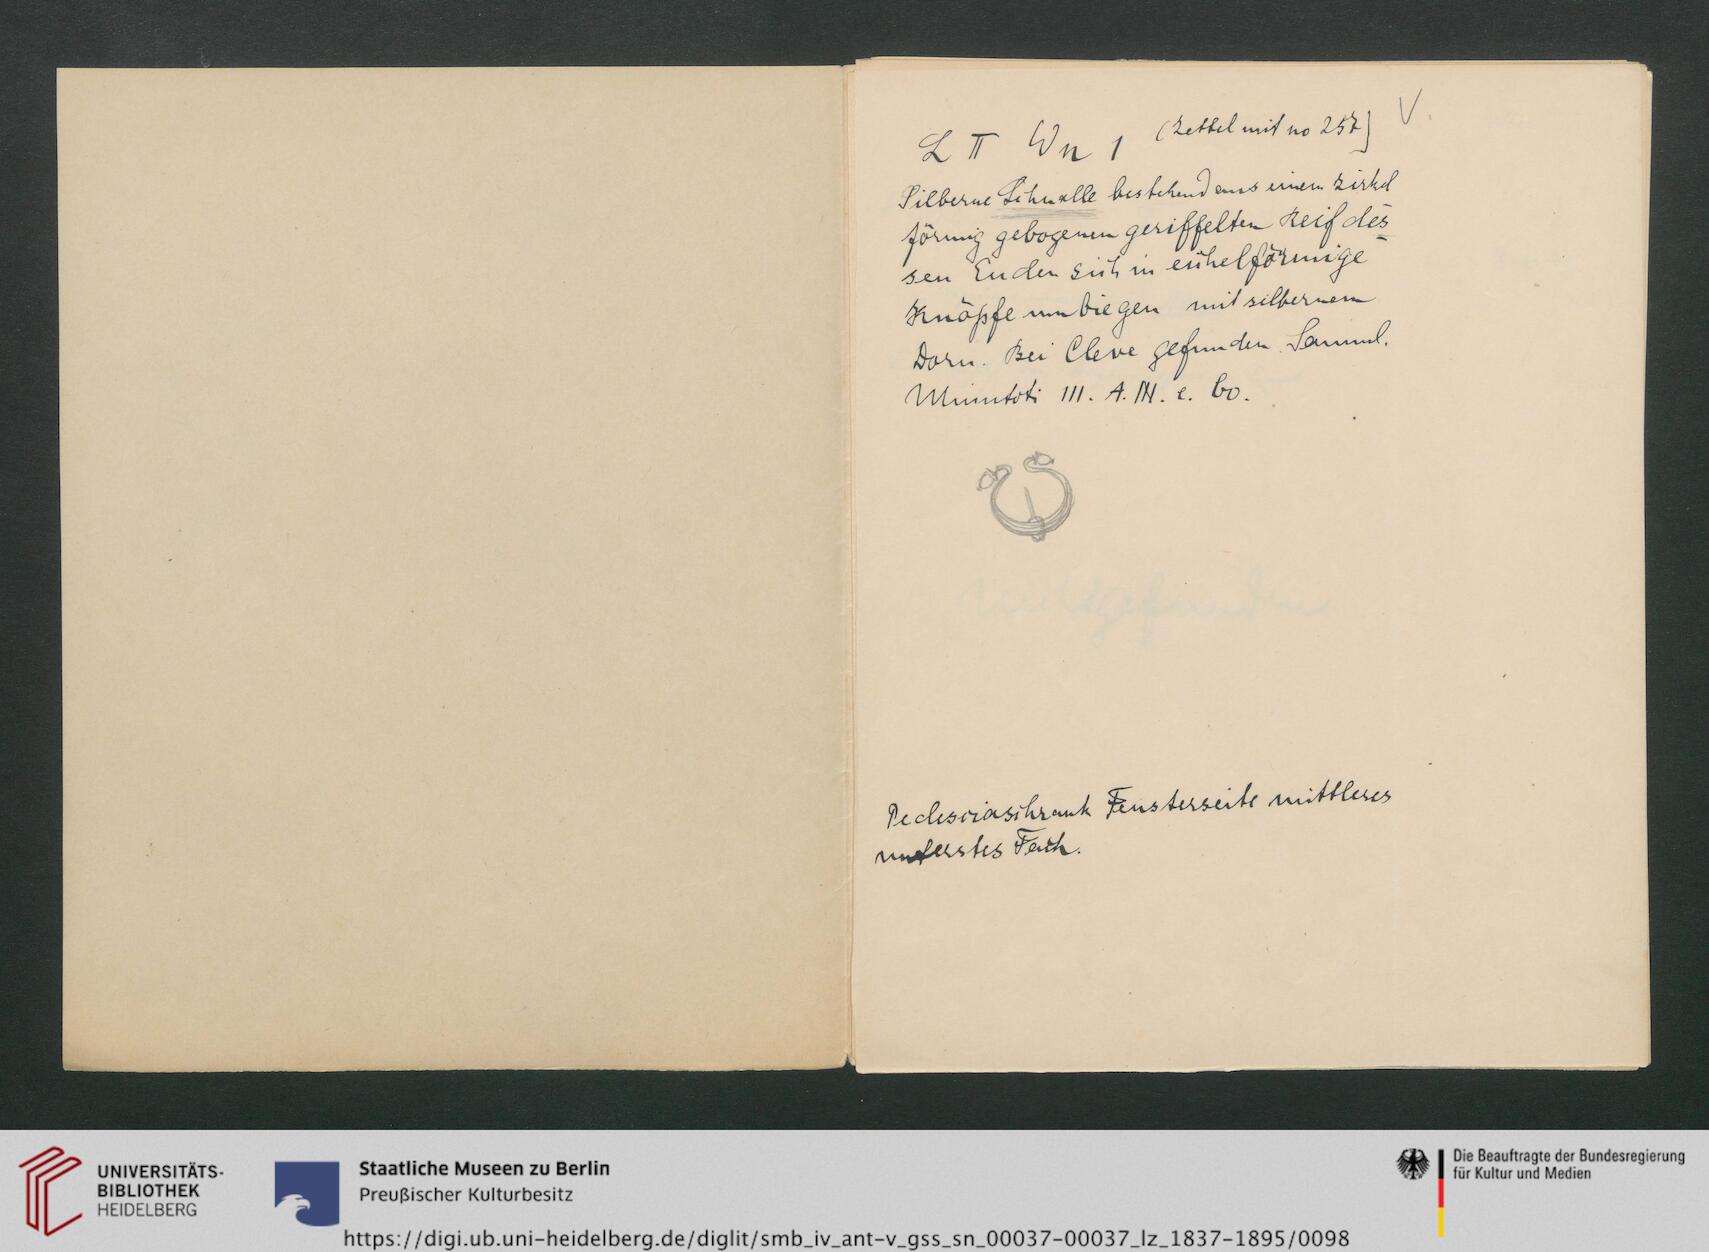 L II Wn 1 (Zettel mit no 257) V.
Silberne Schnalle bestehend aus einem zirkel
förmig gebogenen geriffelten Reif des=
sen Enden sich in eichelförmige
Knöpfe umbiegen mit silbernem
Dorn. Bei Cleve gefunden. Samml.
Minutoli III. A. III. c.
Fensterseite mittleres
unterstes Fach.
UNIVERSITÄTS-
BIBLIOTHEK
HEIDELBERG
Staatliche Museen zu Berlin
Preußischer Kulturbesitz
Die Beauftragte der Bundesregierung
für Kultur und Medien
https://digi.ub.uni-heidelberg.de/diglit/smb_iv_ant-v_gss_sn_00037-00037_lz_1837-1895/0098